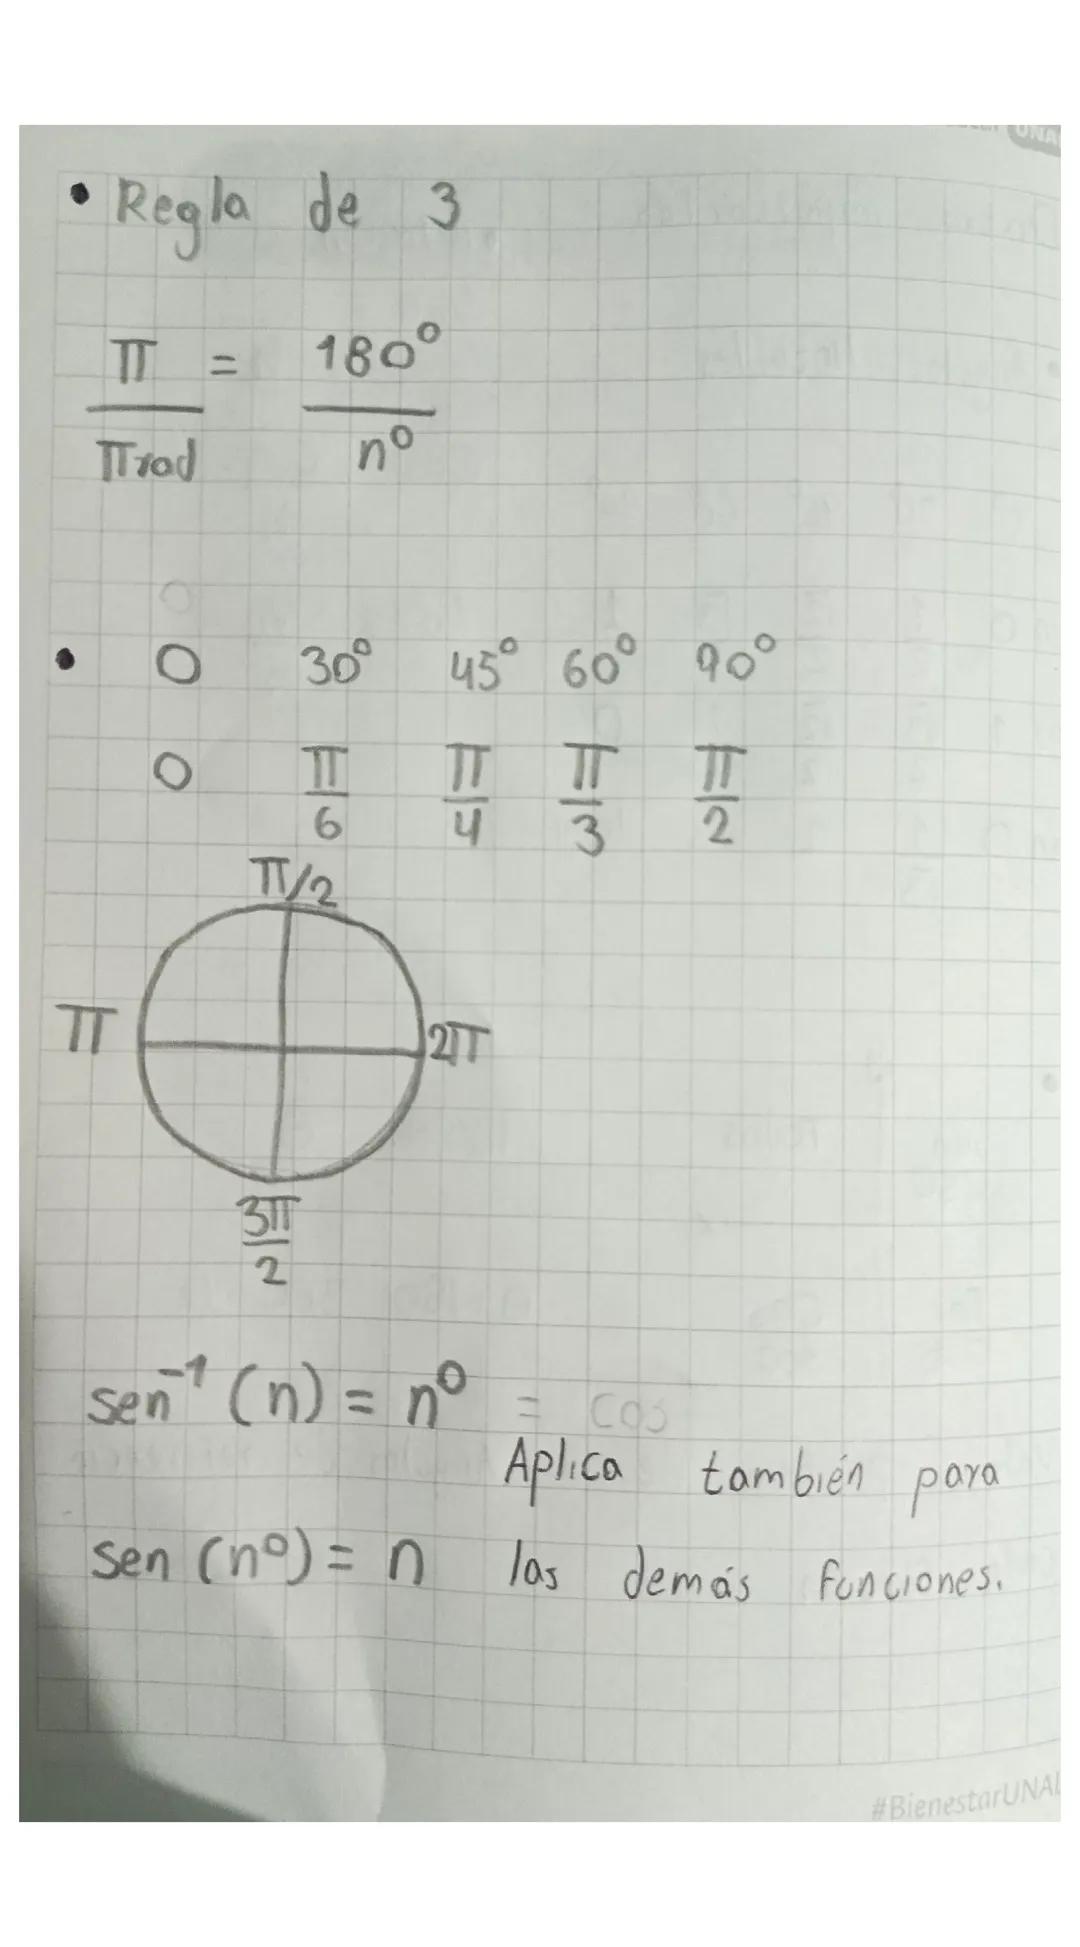 UNA
• Regla de 3
π = 180°
πrad n°
• 0 30° 45° 60° 90°
0 π/6 π/4 π/3 π/2
π/2
π 2π
3π/2
sen⁻¹ (n) = n° = cos
Aplica también para
sen (n°) = n las demás funciones.
#BienestarUNAL